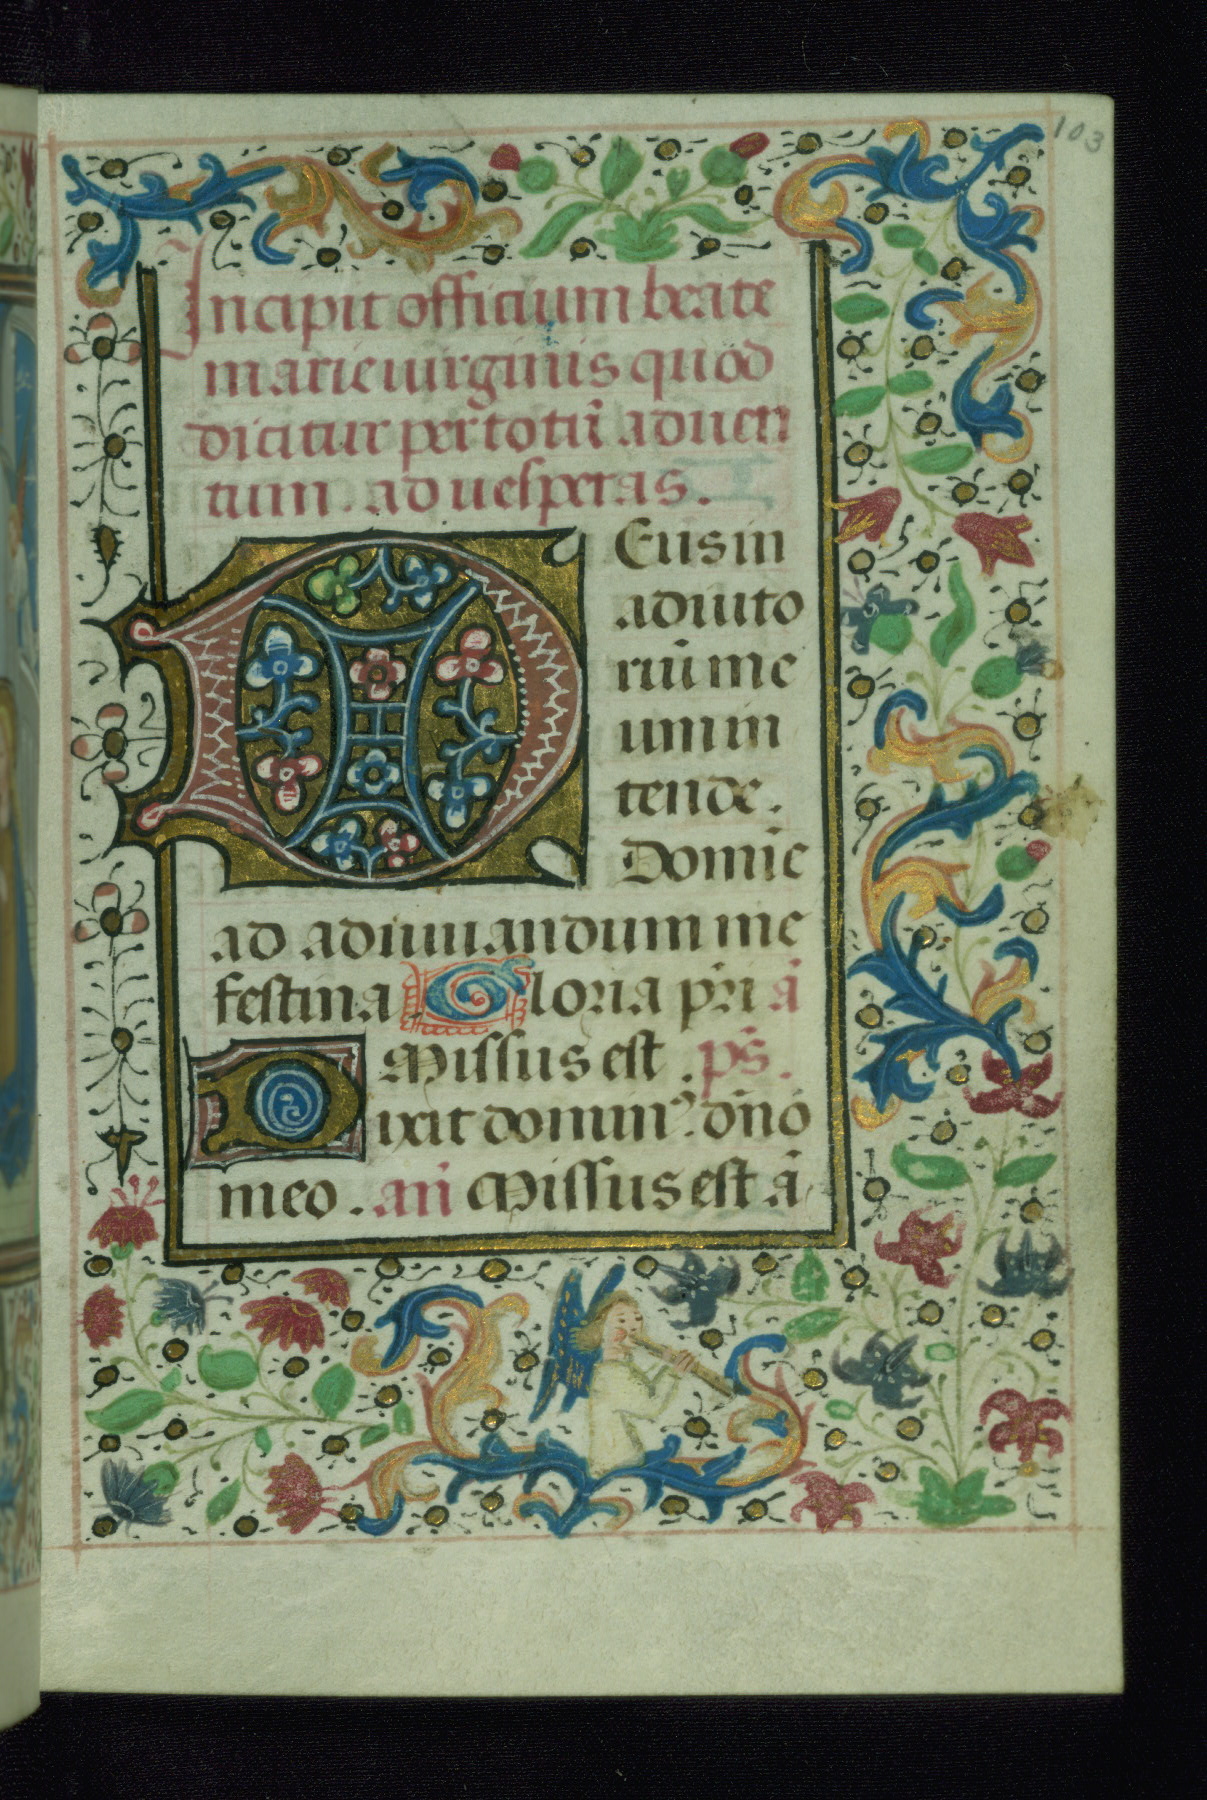 103
Incipit officium beate
marie uirginis quod
dicitur per totū aduen
tum . ad uesperas .
Deus in
adiuto
riū me
um in
tende .
Domīe
ad adiuuandum me
festina . Gloria pr̄i ā
Missus est . ps̄ .
Dixit domin⁹ . dn̄o
meo . an̄ Missus est ā